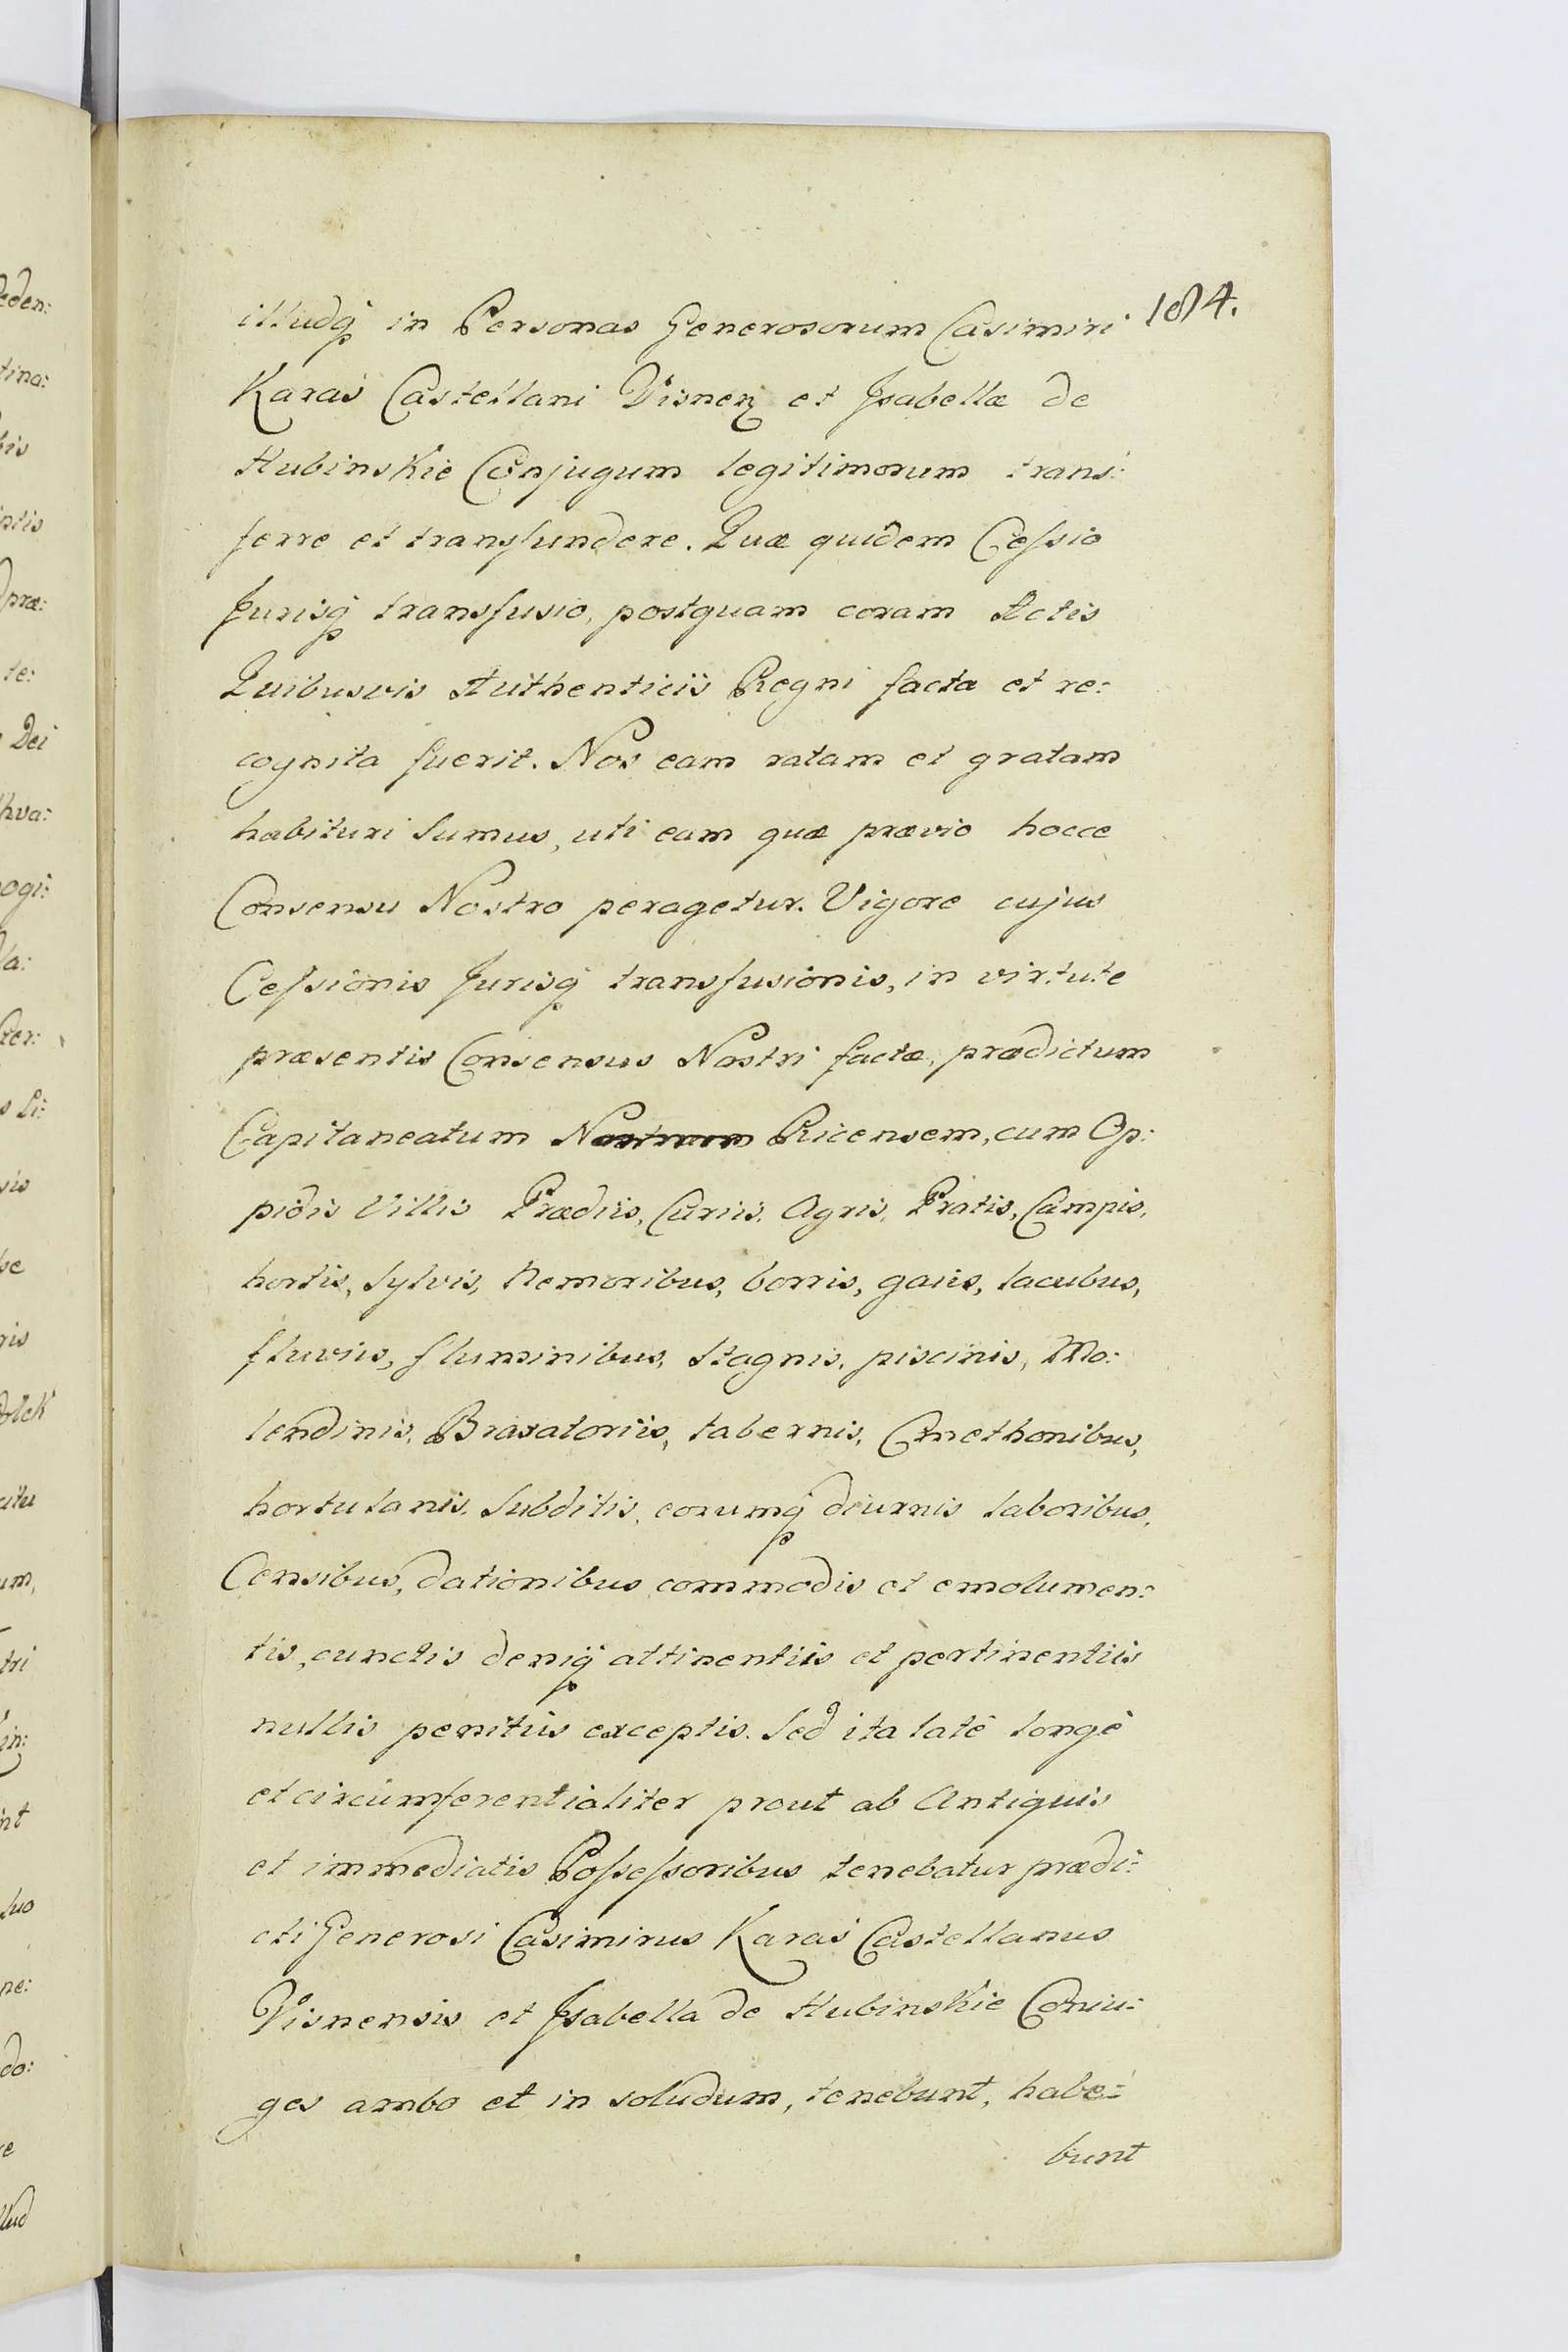 184.
illudq in Personas Generosorum Casimiri
Karaś Castellani Visnen et Isabellæ de
Hubinskie Conjugum legitimorum trans:
ferre et transfundere. Quæ quidem Ceſsio
Jurisq transfusio, postquam coram Actis
Quibusvis Authenticis Regni facta et re:
cognita fuerit. Nos eam ratam et gratam
habituri sumus, uti eam quæ prævio hocce
Consensu Nostro peragetur. Vigore cujus
Ceſsionis Jurisq transfusionis, in virtute
præsentis Consensus Nostri factæ, prædictum
Capitaneatum Nostrum Ricensem, cum Op:
pidis Villis Prædiis, Curiis, Agris, Pratis, Campis,
hortis, Sylvis, Nemoribus, borris, gaiis, lacubus,
fluviis, fluminibus, Stagnis, piscinis, Mo:
lendinis, Braxatoriis, tabernis, Cmethonibus,
hortulanis, Subditis, eorumq diurnis laboribus,
Censibus, dationibus, commodis et emolumen:
tis, cunctis deniq attinentiis et pertinentiis
nullis penitùs exceptis. Sed ita latè longè
et circumferentialiter prout ab Antiquis
et immediatis Poſseſsoribus tenebatur prædi:
cti Generosi Casimirus Karaś Castellanus
Visnensis et Isabella de Hubinskie Coniu:
ges ambo et in soludum, tenebunt, habe:
bunt
eden:
tina:
bis
intis
præ:
te:
Dei
hva:
ogi:
la:
Li:
sis
se
ris
um,
tri
in:
nt
suo
ne:
do: